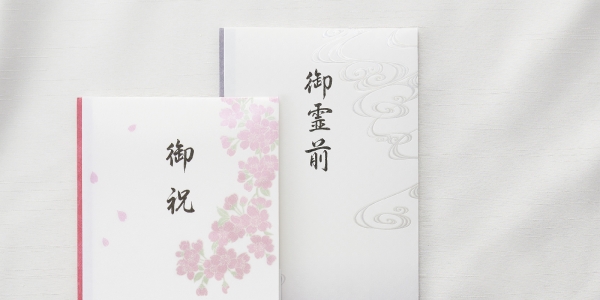 御祝
御霊前